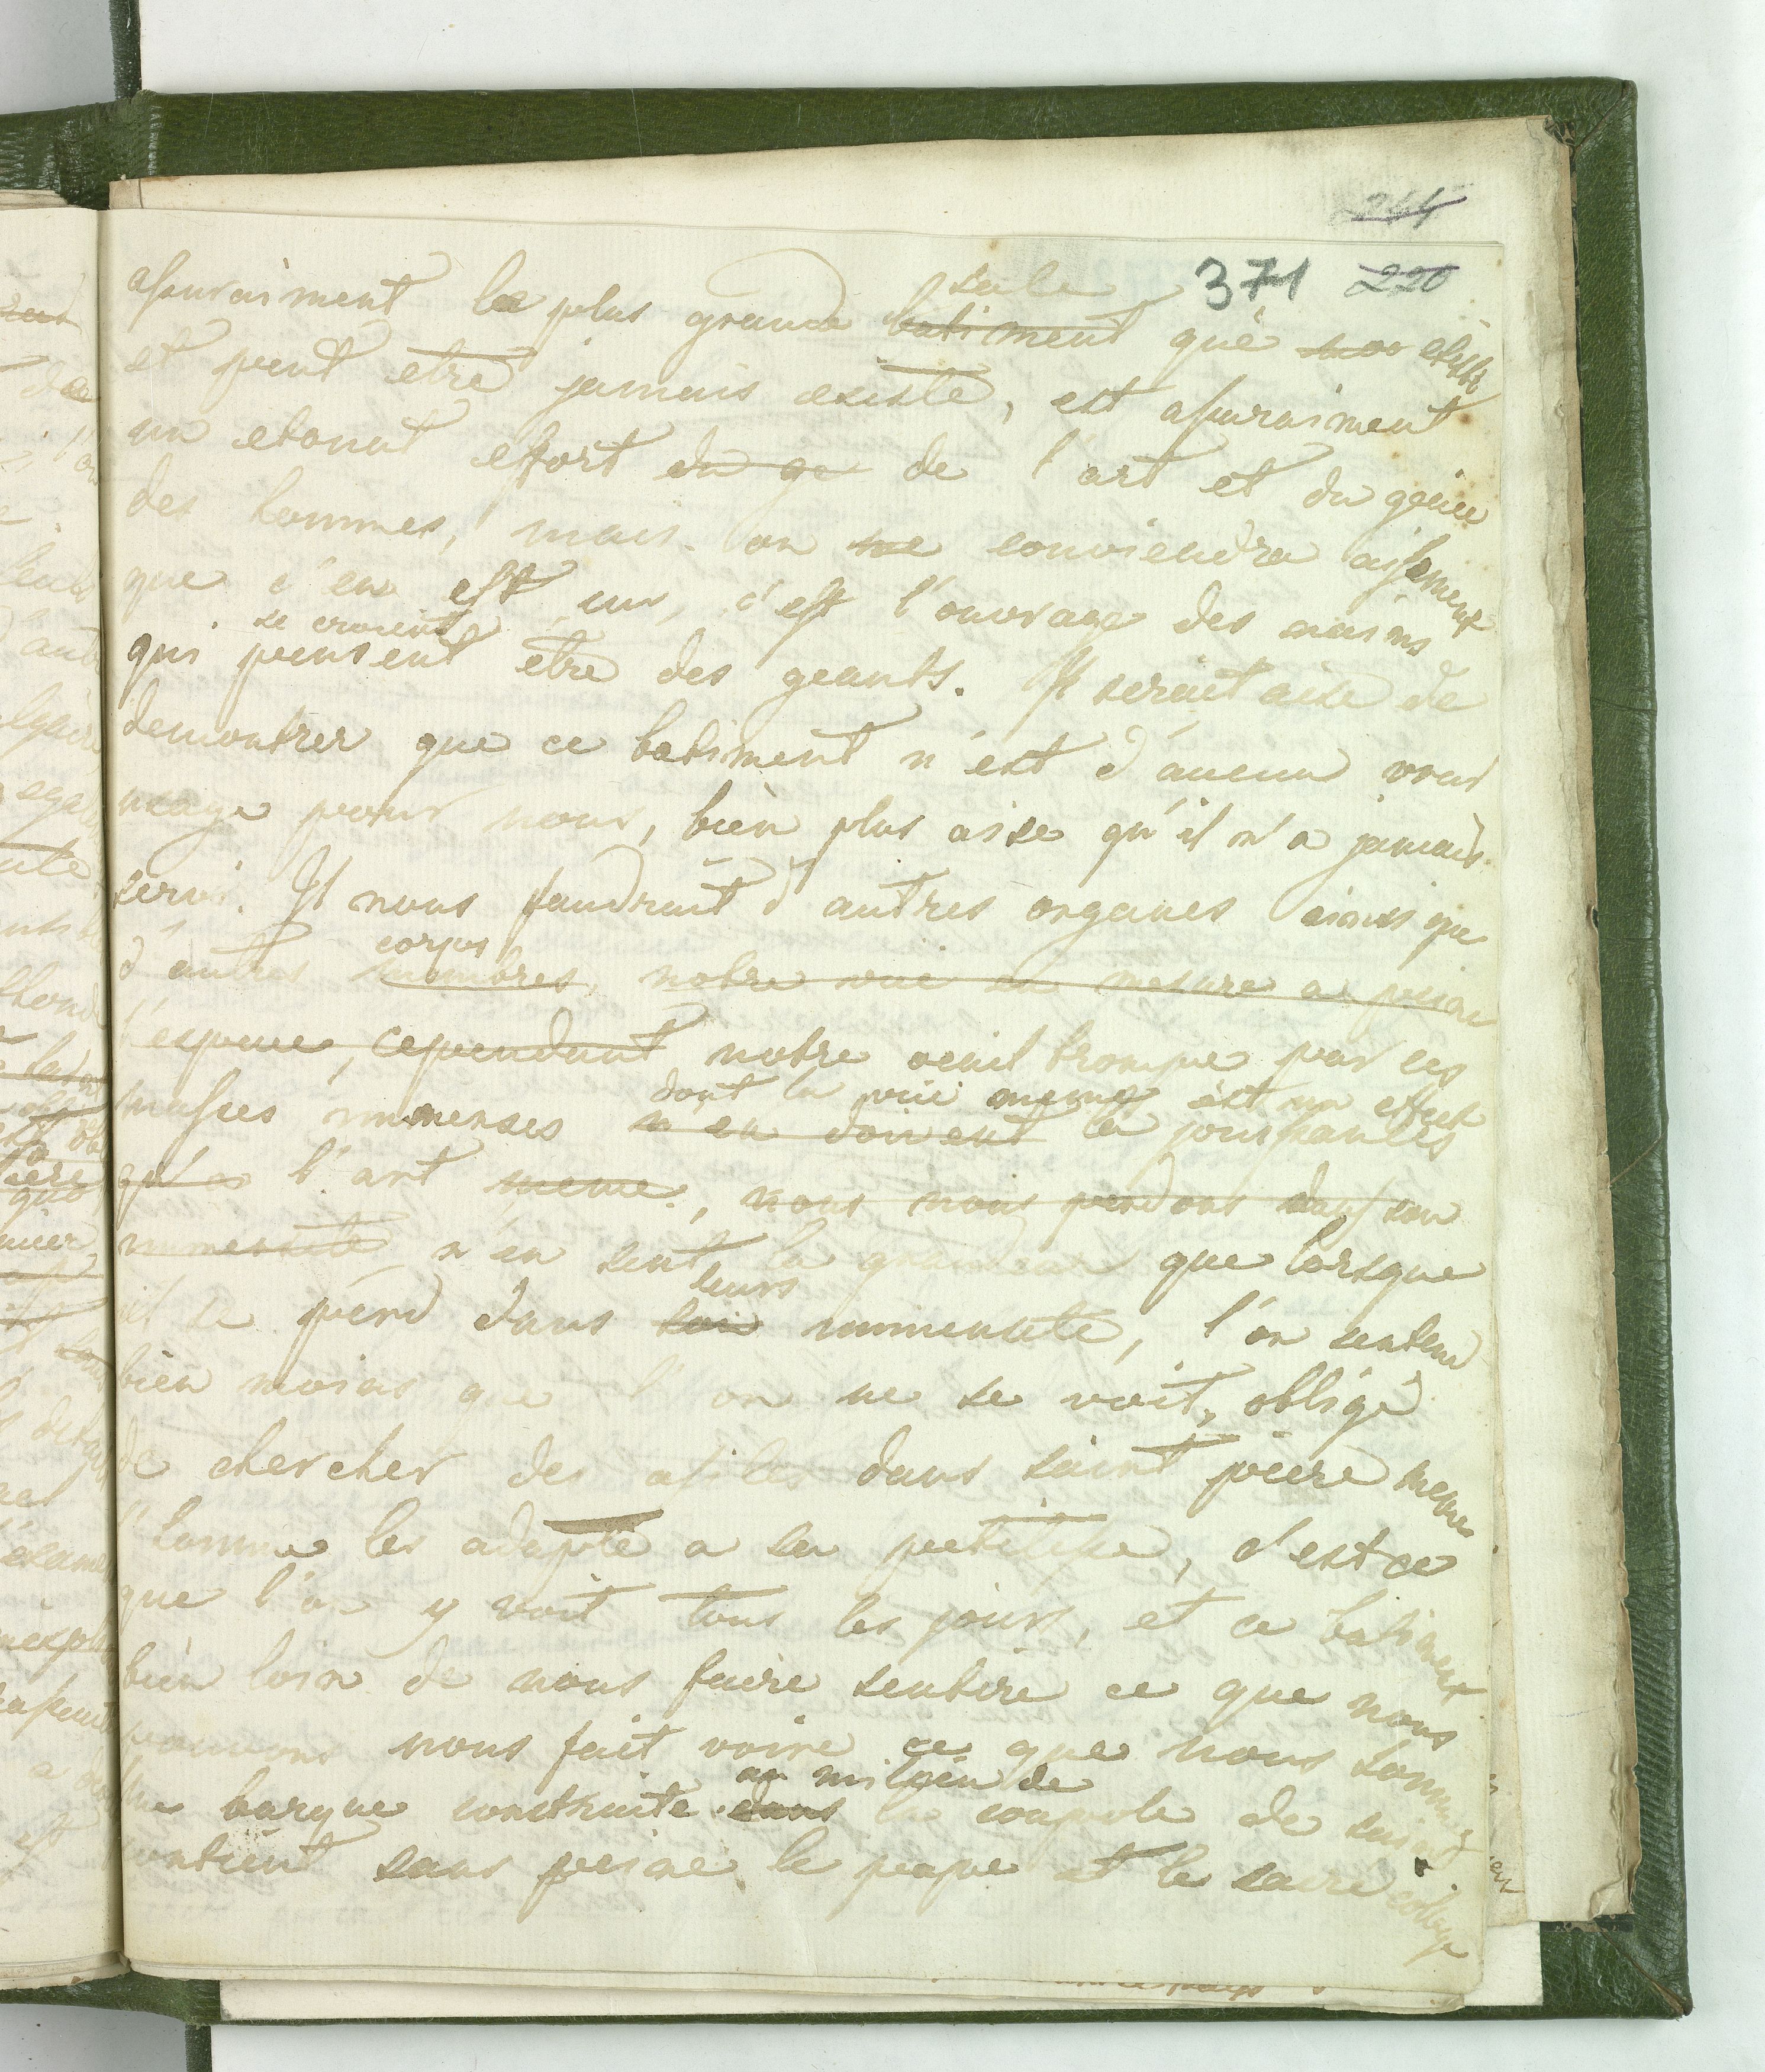 244
371 220
sale
assuraiment la plus grande batiment que existe
et peut etre jamais existé, est assuraiment
un etonat effort du ge de l'art et du genie
des hommes, mais on ne conviendra aisement
que s'en est un, c'est l'ouvrage des nains
se croient
qui pensent etre des geants. Il serait aise de
demontrer que ce batiment n'est d'aucun vrai
usage pour nous, bien plus aise qu'il n'a jamais
servi. Il nous faudrait d'autres organes ainsi que
corps
d'autres membres, notre vue en mesure a peine
l'espace, cependant notre oeuil trompé par ces
dont la vue meme est un effet
masses immenses n'en doivent la jouissances
qu'a l'art meme, nous nous perdons dans son
immensité n'en sent la grandeur que lorsque
leurs
il se perd dans son immensité, l'on sentend
bien moins que l'on ne se voit, obligé
de chercher des asiles dans saint pierre meme
l'homme les adapte a sa petitesse, c'est ce
que l'on y voit tous les jours, et ce batiment
bien loin de nous faire sentire ce que nous
pouvons nous fait voire ce que nous sommes
au milieu de
une barque construite dans la coupole de saint
contient sans peine le pape et le sacré college